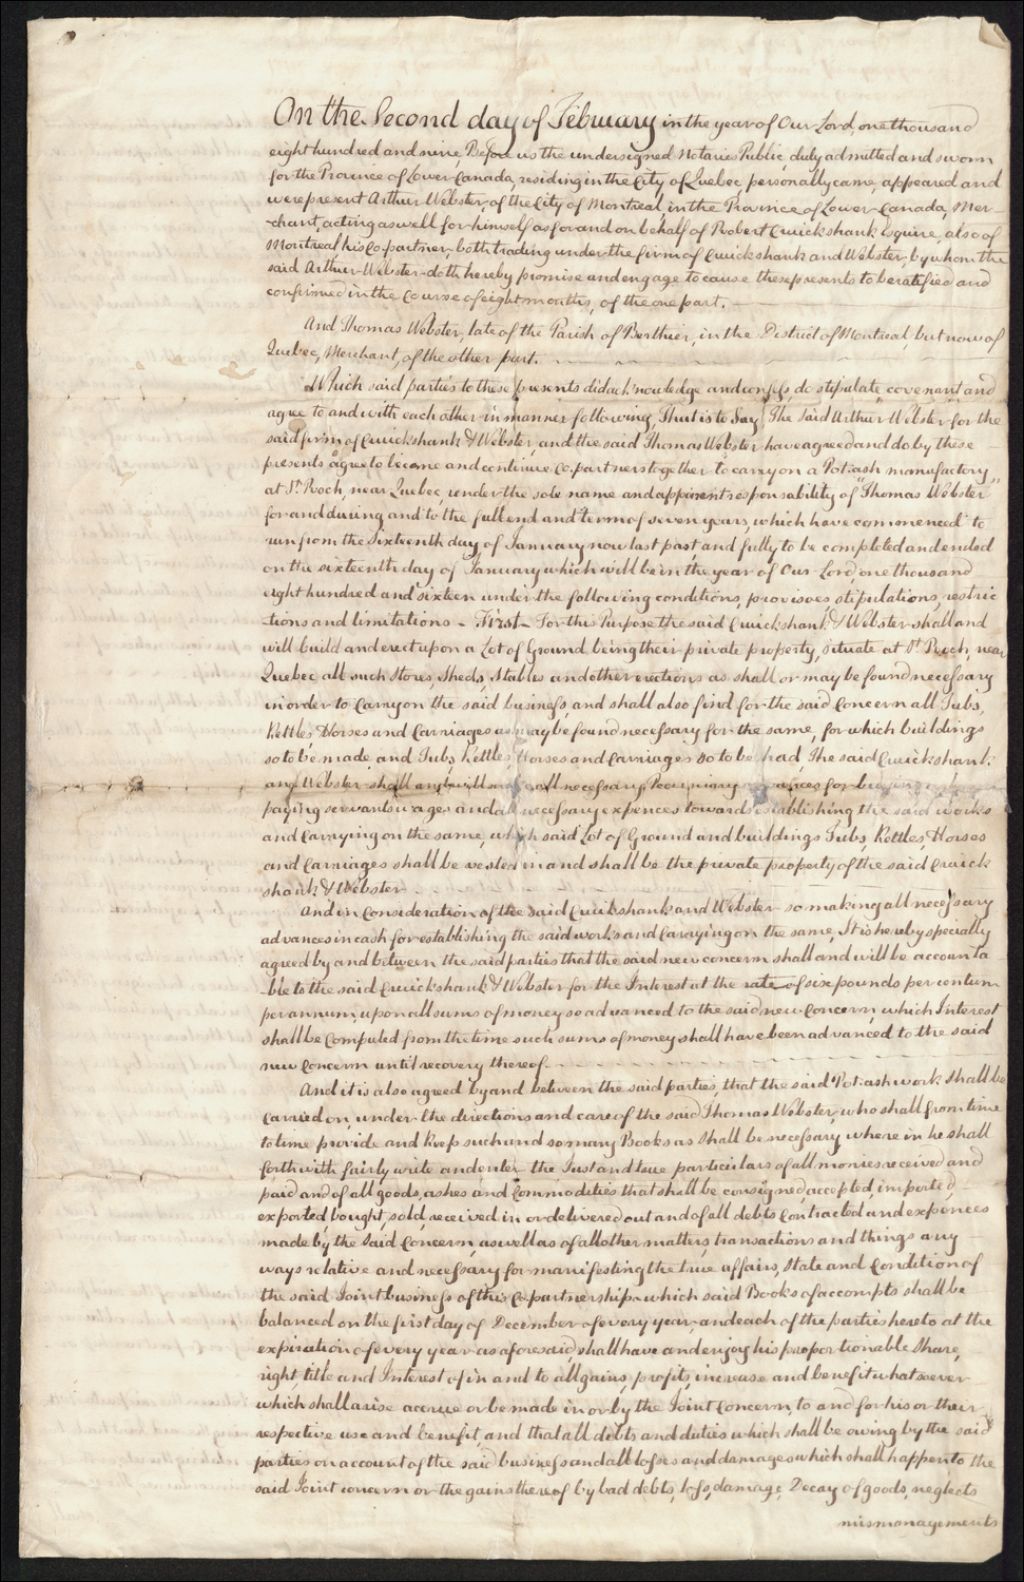 On the Second day of February in the year of Our Lord, one thousand
eight hundred and nine, Before us the undersigned Notaries Public, duly admitted and sworn
for the Province of Lower-Canada, residing in the City of Quebec, personally came, appeared and
were present Arthur Webster, of the City of Montreal, in the Province of Lower-Canada, Mer-
-chant, acting as well for himself as for and on behalf of Robert Cruickshank Esquire, also of
Montreal his Copartner, both trading under the firm of Cruickshank and Webster, by whom the
said Arthur Webster doth hereby promise and engage to cause these presents to be ratified and
confirmed in the Course of eight months, of the one part.
And Thomas Webster, late of the Parish of Berthier, in the District of Montreal but now of
Quebec, Merchant, of the other part.
Which said parties to these presents did acknowledge and confess, do stipulate, covenant and
agree to and with each other in manner following, That is to Say, The Said Arthur Webster for the
said firm of Cruickshank & Webster, and the said Thomas Webster have agreed and do by these
presents agree to become and continue Copartners together to carry on a Pot-ash manufactory
at St. Roch, near Quebec, under the sole name and apparent responsability of "Thomas Webster"
for and during and to the full end and term of seven years, which have commenced to
run from the Sixteenth day of January now last past and fully to be completed and ended
on the sixteenth day of January which will be in the year of Our Lord, one thousand
eight hundred and sixteen under the following conditions, provisoes stipulations, restric
tions and limitations - First - For this Purpose the said Cruickshank & Webster shall and
will build and erect upon a Lot of Ground being their private property, situate at St. Roch, near
Quebec all such Stores, Sheds, Stables and other erections as shall or may be found necessary
in order to Carry on the said business, and shall also find for the said Concern all Tubs,
Kettles Horses and Carriages as may be found necessary for the same, for which buildings
so to be made and Tubs, Kettles, Horses and Carriages so to be had, The said Cruickshank
and Webster shall and will make all necessary Pecuniary advances for
paying servants wages and all necessary expences towards establishing the said works
and Carrying on the same, which said Lot of Ground and buildings Tubs, Kettles, Horses
and Carriages shall be vested in and shall be the private property of the said Cruick
shank & Webster
And in Consideration of the said Cruickshank and Webster so making all necessary
advances in cash for establishing the said works and Carrying on the same, It is hereby specially
agreed by and between the said parties that the said new concern shall and will be accounta
-ble to the said Cruickshank & Webster for the Interest at the rate of six pounds per centum
per annum, upon all sums of money so advanced to the said new Concern, which Interest
shall be Computed from the time such sums of money shall have been advanced to the said
new Concern until recovery thereof.
And it is also agreed by and between the said parties, that the said Pot-ash work shall be
Carried on, under the directions and care of the said Thomas Webster, who shall from time
to time provide and keep such and so many Books as shall be necessary where in he shall
forthwith fairly write and enter the Just and true particulars of all monies received and
paid and of all goods, ashes and Commodities that shall be consigned, accepted, imported,
exported, bought, sold, received in or delivered out and of all debts Contracted and expences
made by the said Concern, as well as of all other matters, transactions and things any
ways relative and necessary for manifesting the true affairs, State and Condition of
the said Joint business of this Copartnership which said Books of accompts shall be
balanced on the first day of December of every year, and each of the parties hereto at the
expiration of every year as aforesaid, shall have and enjoy his proportionable Share,
right title and Interest of in and to all gains, profit, increase and benefit whatsoever
which shall arise accrue or be made in or by the Joint Concern, to and for his or their
respective use and benefit, and that all debts and duties which shall be owing by the said
parties on account of the said business and all losses and damages which shall happen to the
said Joint concern or the gains thereof by bad debts, loss, damage, Decay of goods, neglects
mismanagements